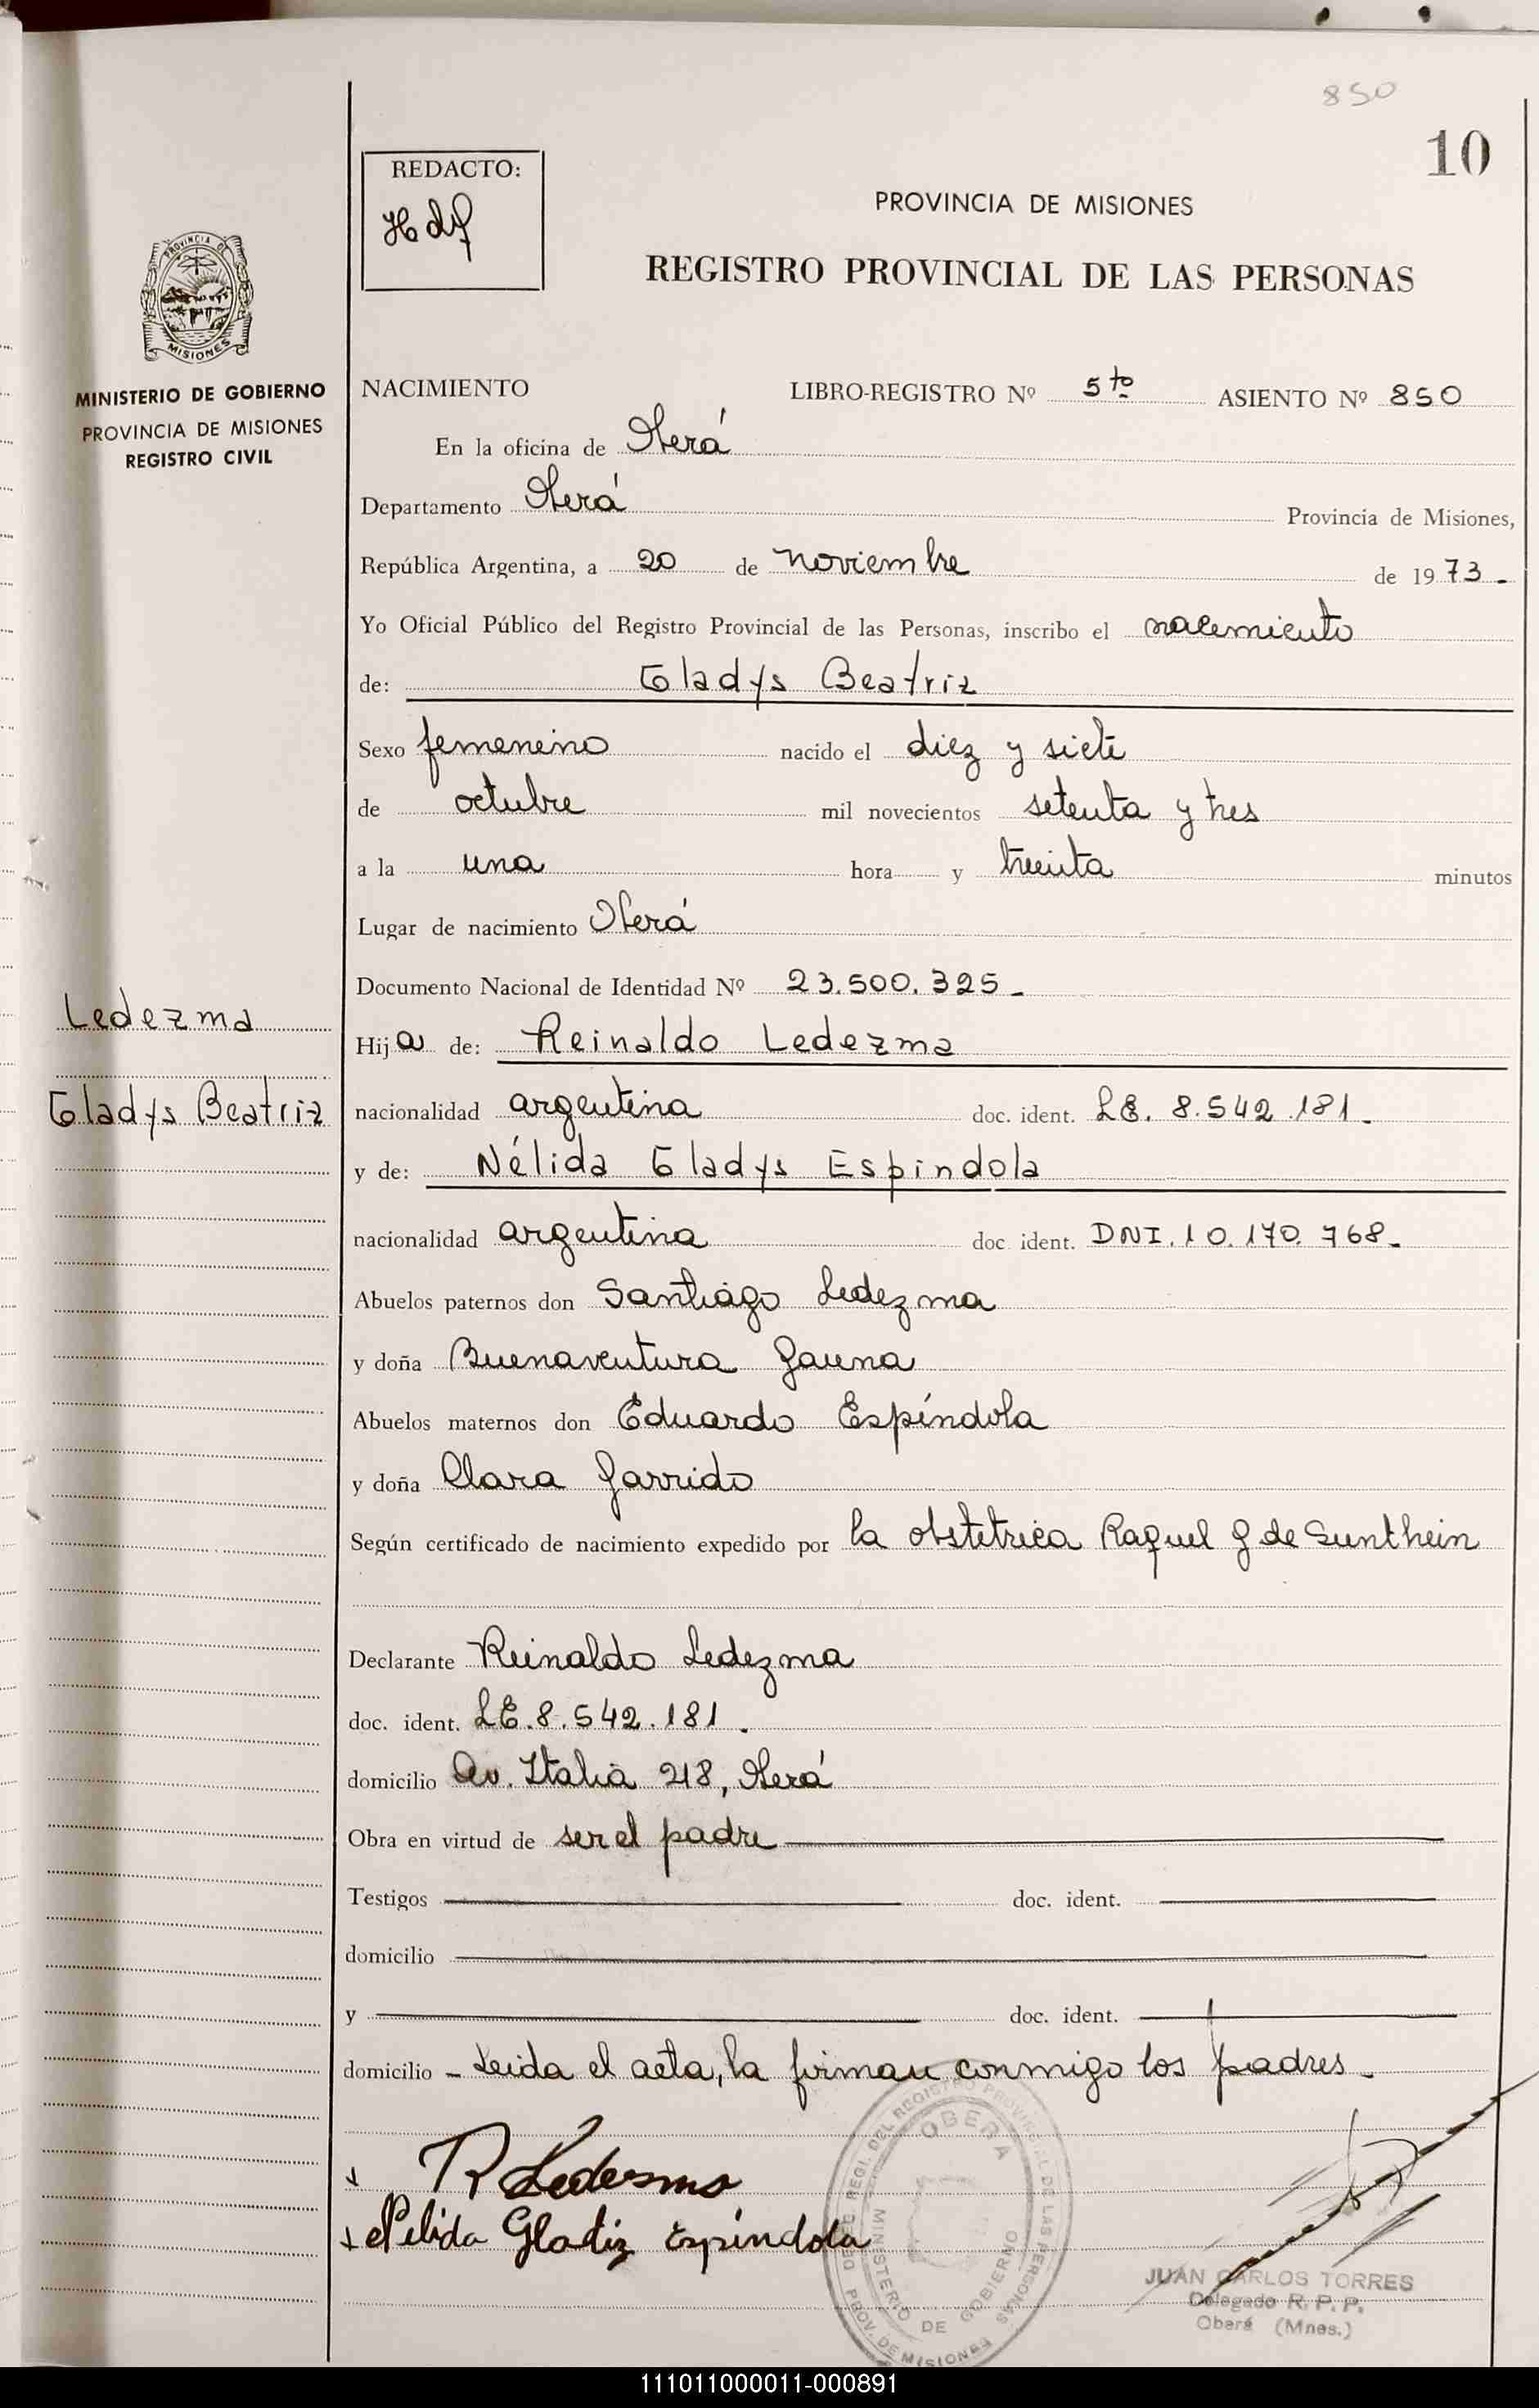 850
10
REDACTO:
PROVINCIA DE MISIONES
REGISTRO PROVINCIAL DE LAS PERSONAS
PROVINCIA DE
MISIONES
MINISTERIO DE GOBIERNO
PROVINCIA DE MISIONES
REGISTRO CIVIL
NACIMIENTO LIBRO-REGISTRO Nº 5to ASIENTO Nº 850
En la oficina de Oberá
Departamento Oberá Provincia de Misiones,
República Argentina, a 20 de noviembre de 1973.-
Yo Oficial Público del Registro Provincial de las Personas, inscribo el nacimiento
de: Gladys Beatriz
Sexo femenino nacido el diez y siete
de octubre mil novecientos setenta y tres
a la una hora y treinta minutos
Lugar de nacimiento Oberá
Documento Nacional de Identidad Nº 23.500.325-
Ledezma
Hija de: Reinaldo Ledezma
Gladys Beatriz
nacionalidad argentina doc. ident. LE. 8.542.181.
y de: Nélida Gladys Espindola
nacionalidad argentina doc ident. DNI. 10.170.768-
Abuelos paternos don Santiago Ledezma
y doña Buenaventura Gauna
Abuelos maternos don Eduardo Espíndola
y doña Clara Garrido
Según certificado de nacimiento expedido por la obstétrica Raquel G de Sunthein
Declarante Reinaldo Ledezma
doc. ident. LE.8.542.181.
domicilio Av. Italia 218, Oberá
Obra en virtud de ser el padre
Testigos doc. ident.
domicilio
y doc. ident.
domicilio - Leida el acta, la firman conmigo los padres.-
R Ledesma
Nelida Gladiz Espindola
DELEG. REGI. DEL REGISTRO PROVINCIAL DE LAS PERSONAS
OBERA
MINISTERIO DE GOBIERNO
PROV. DE MISIONES
JUAN CARLOS TORRES
Delegado R. P. P.
Oberá (Mnes.)
111011000011-000891